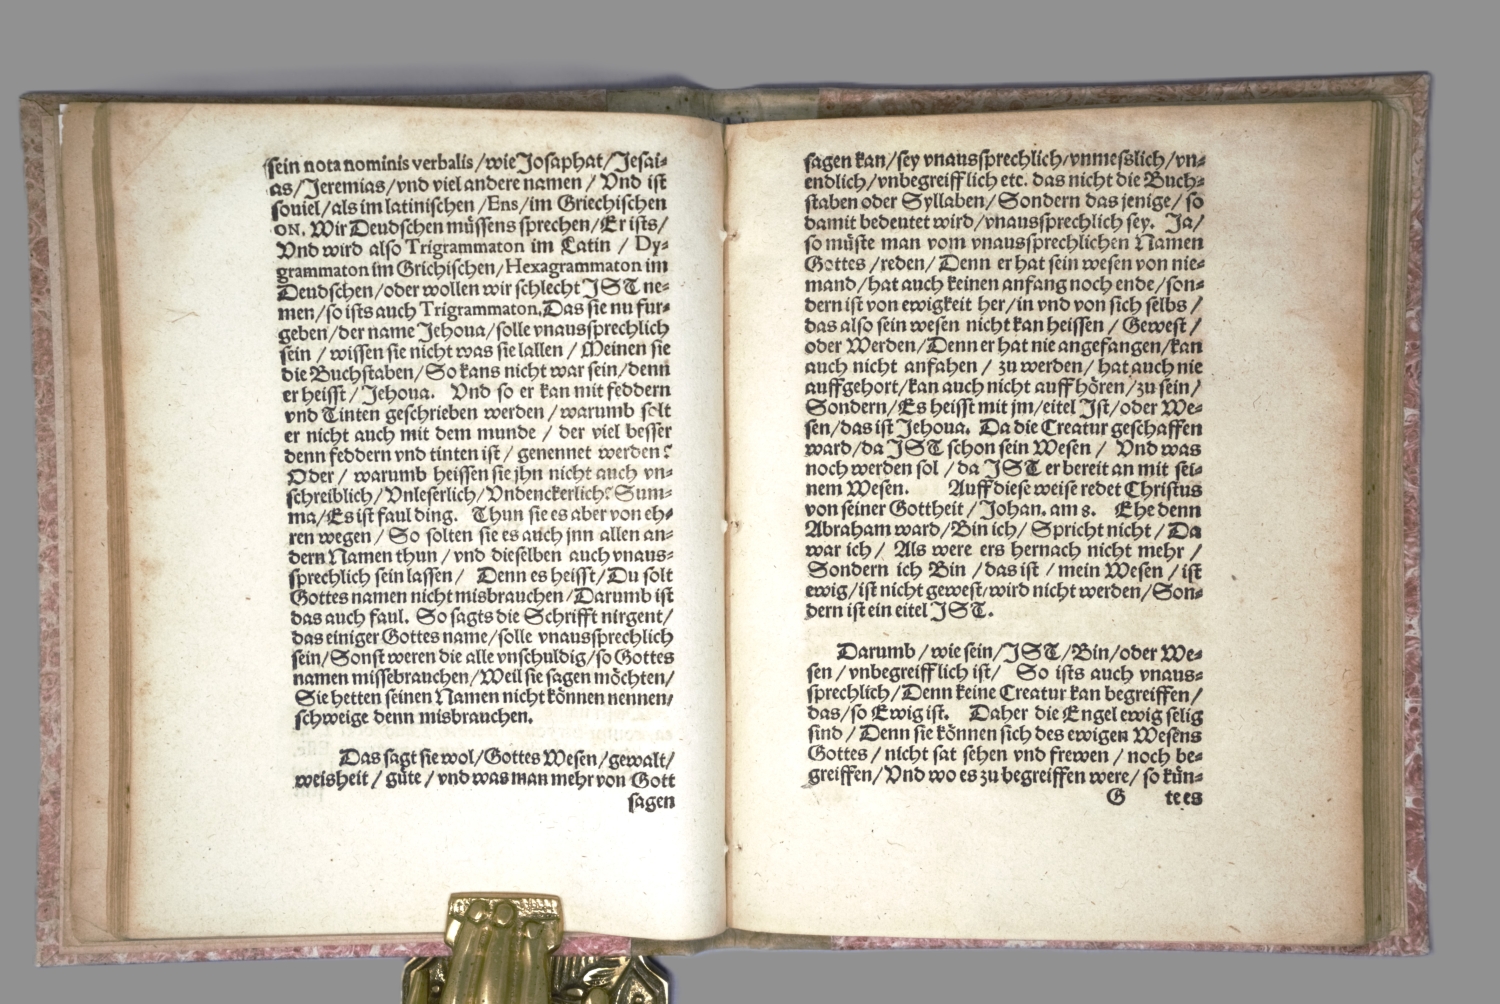 sein nota nominis verbalis / wie Josaphat / Jesai⸗
as / Jeremias / vnd viel andere namen / Vnd ist
souiel / als im latinischen / Ens / im Griechischen
ON. Wir Deudschen müssens sprechen / Er ists /
Vnd wird also Trigrammaton im Latin / Dy⸗
grammaton im Grichischen / Hexagrammaton im
Deudschen / oder wollen wir schlecht JST ne⸗
men / so ists auch Trigrammaton. Das sie nu fur⸗
geben / der name Jehoua / solle vnaussprechlich
sein / wissen sie nicht was sie lallen / Meinen sie
die Buchstaben / So kans nicht war sein / denn
er heisst / Jehoua. Vnd so er kan mit feddern
vnd Tinten geschrieben werden / warumb solt
er nicht auch mit dem munde / der viel besser
denn feddern vnd tinten ist / genennet werden?
Oder / warumb heissen sie jhn nicht auch vn⸗
schreiblich / Vnleserlich / Vndenckerlich? Sum⸗
ma / Es ist faul ding. Thun sie es aber von eh⸗
ren wegen / So solten sie es auch jnn allen an⸗
dern Namen thun / vnd dieselben auch vnaus⸗
sprechlich sein lassen / Denn es heisst / Du solt
Gottes namen nicht misbrauchen / Darumb ist
das auch faul. So sagts die Schrifft nirgent /
das einiger Gottes name / solle vnaussprechlich
sein / Sonst weren die alle vnschuldig / so Gottes
namen missebrauchen / Weil sie sagen möchten /
Sie hetten seinen Namen nicht können nennen /
schweige denn misbrauchen.
Das sagt sie wol / Gottes Wesen / gewalt /
weisheit / güte / vnd was man mehr von Gott
sagen
sagen kan / sey vnaussprechlich / vnmesslich / vn⸗
endlich / vnbegreifflich etc. das nicht die Buch⸗
staben oder Syllaben / Sondern das jenige / so
damit bedeutet wird / vnaussprechlich sey. Ja /
so müste man vom vnaussprechlichen Namen
Gottes / reden / Denn er hat sein wesen von nie⸗
mand / hat auch keinen anfang noch ende / son⸗
dern ist von ewigkeit her / in vnd von sich selbs /
das also sein wesen nicht kan heissen / Gewest /
oder Werden / Denn er hat nie angefangen / kan
auch nicht anfahen / zu werden / hat auch nie
auffgehort / kan auch nicht auff hören / zu sein /
Sondern / Es heisst mit jm / eitel Jst / oder We⸗
sen / das ist Jehoua. Da die Creatur geschaffen
ward / da JST schon sein Wesen / Vnd was
noch werden sol / da JST er bereit an mit sei⸗
nem Wesen. Auff diese weise redet Christus
von seiner Gottheit / Johan. am 8. Ehe denn
Abraham ward / Bin ich / Spricht nicht / Da
war ich / Als were ers hernach nicht mehr /
Sondern ich Bin / das ist / mein Wesen / ist
ewig / ist nicht gewest / wird nicht werden / Son⸗
dern ist ein eitel JST.
Darumb / wie sein / JST / Bin / oder We⸗
sen / vnbegreifflich ist / So ists auch vnaus⸗
sprechlich / Denn keine Creatur kan begreiffen /
das / so Ewig ist. Daher die Engel ewig selig
sind / Denn sie können sich des ewigen Wesens
Gottes / nicht sat sehen vnd frewen / noch be⸗
greiffen / Vnd wo es zu begreiffen were / so kün⸗
G te es